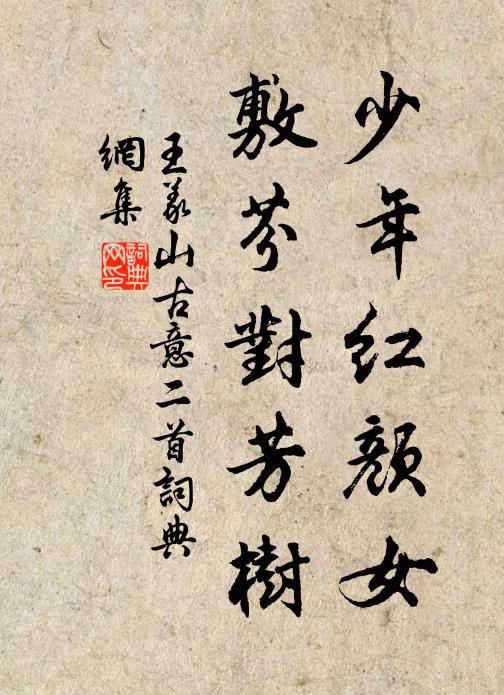 少年红颜女
敷芬對芳樹
王义山古意二首詞典
網集
詞典網印